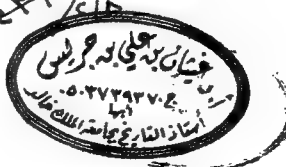 غيثان بن علي بن جريس
ج ٠٥٠٣٧٣٩٣٧
أبها
أستاذ التاريخ بجامعة الملك خالد